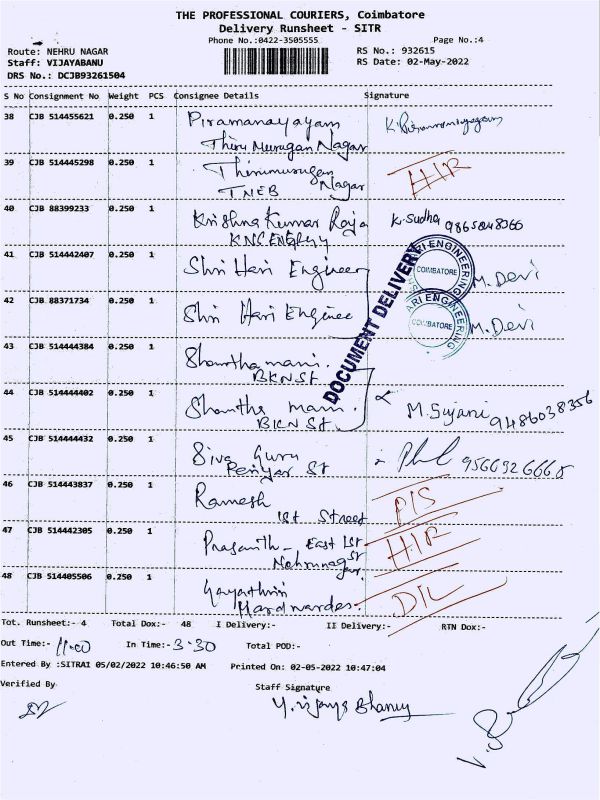 THE PROFESSIONAL COURIERS, Coimbatore
Delivery Runsheet - SITR
Phone No.:0422-3505555 Page No.:4
Route: NEHRU NAGAR RS No.: 932615
Staff: VIJAYABANU RS Date: 02-May-2022
DRS No.: DCJB93261504
S No Consignment No Weight PCS Consignee Details Signature
38 CJB 514455621 0.250 1 Piramanayagam
Thiru Murugan Nagar
39 CJB 514445298 0.250 1 Thirumurugan Nagar HIR
TNEB
40 CJB 88399233 0.250 1 Krishna Kumar Raja K. Sudha 9865048366
41 CJB 514442407 0.250 1 Shri Hari Engineer M. Devi
ARI ENGINEERING
COIMBATORE
42 CJB 88371734 0.250 1 Shri Hari Enginee M. Devi
ARI ENGINEERING
COIMBATORE
DOCUMENT DELIVERY
43 CJB 514444384 0.250 1 Shantha mani.
BKN St
44 CJB 514444402 0.250 1 Shantha mani. M. Sujani 9486038356
BKN St
45 CJB 514444432 0.250 1 Siva Guru 9566926668
Periyar St
46 CJB 514443837 0.250 1 Ramesh P/S
1st Street
47 CJB 514442305 0.250 1 Prasanth - East 1st St HIR
Nehrunagar
48 CJB 514405506 0.250 1 Gayathri D/L
Tot. Runsheet:- 4 Total Dox:- 48 I Delivery:- II Delivery:- RTN Dox:-
Out Time:- 11.00 In Time:- 3-30 Total POD:-
Entered By :SITRA1 05/02/2022 10:46:50 AM Printed On: 02-05-2022 10:47:04
Verified By Staff Signature